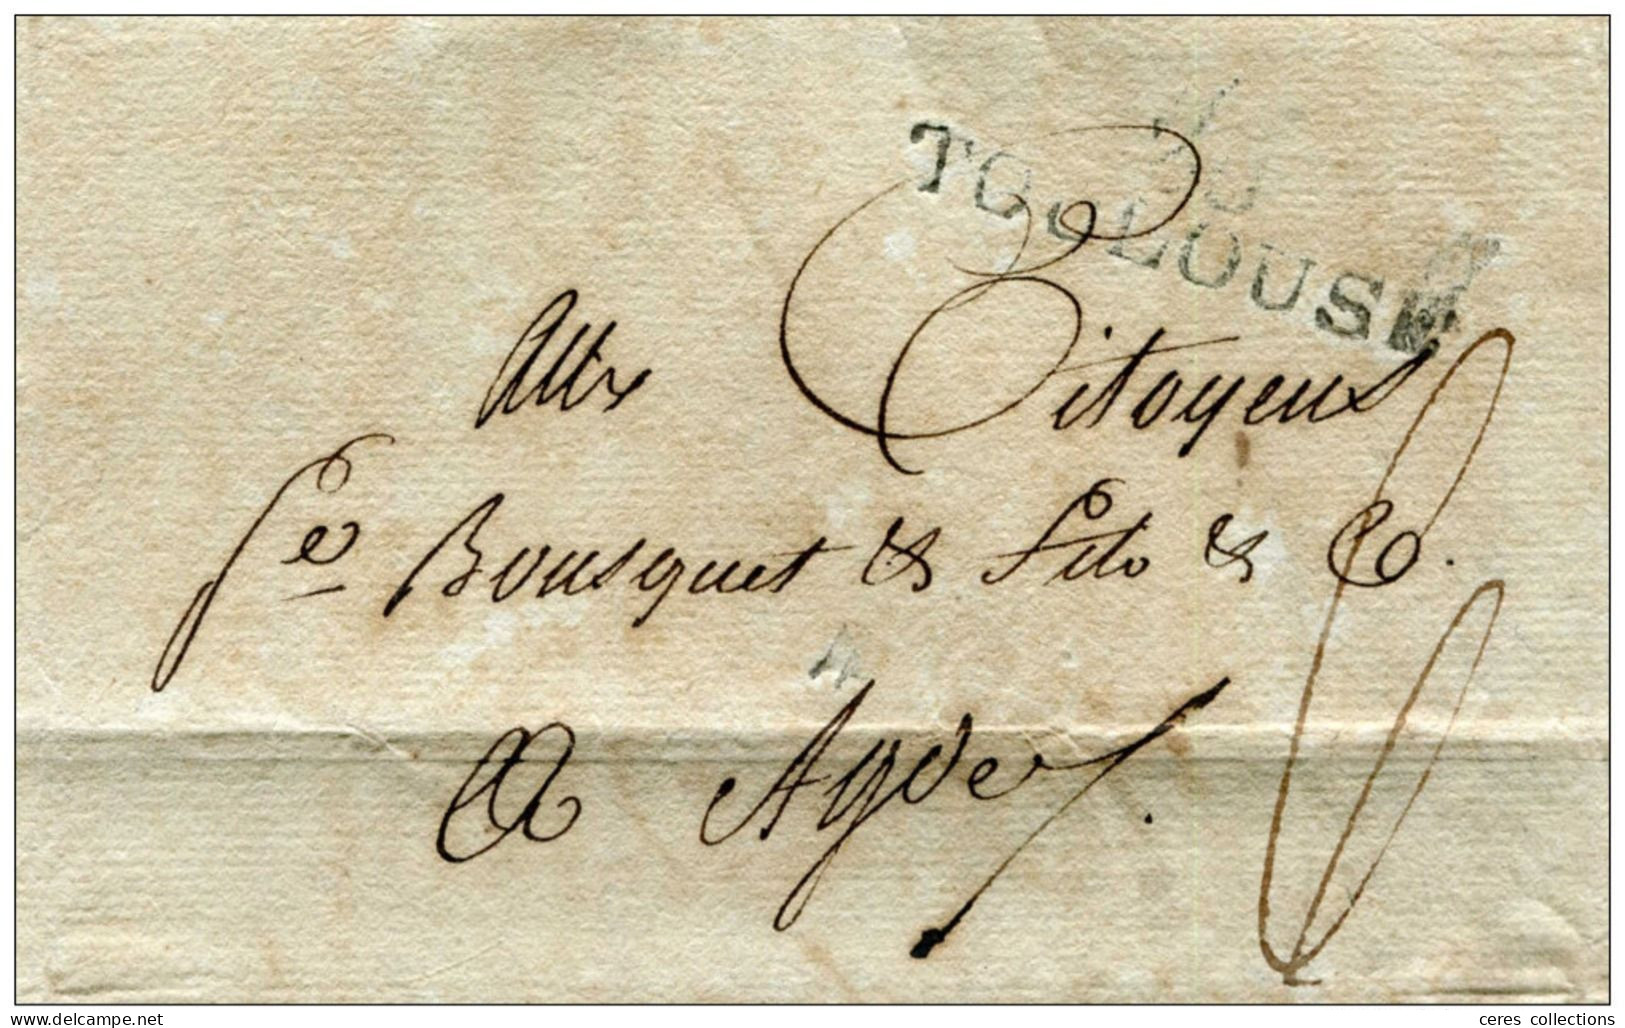 TOULOUSE
Aux Citoyens
Pe Bousquet & fils & C.
A Agde
www.delcampe.net
ceres collections